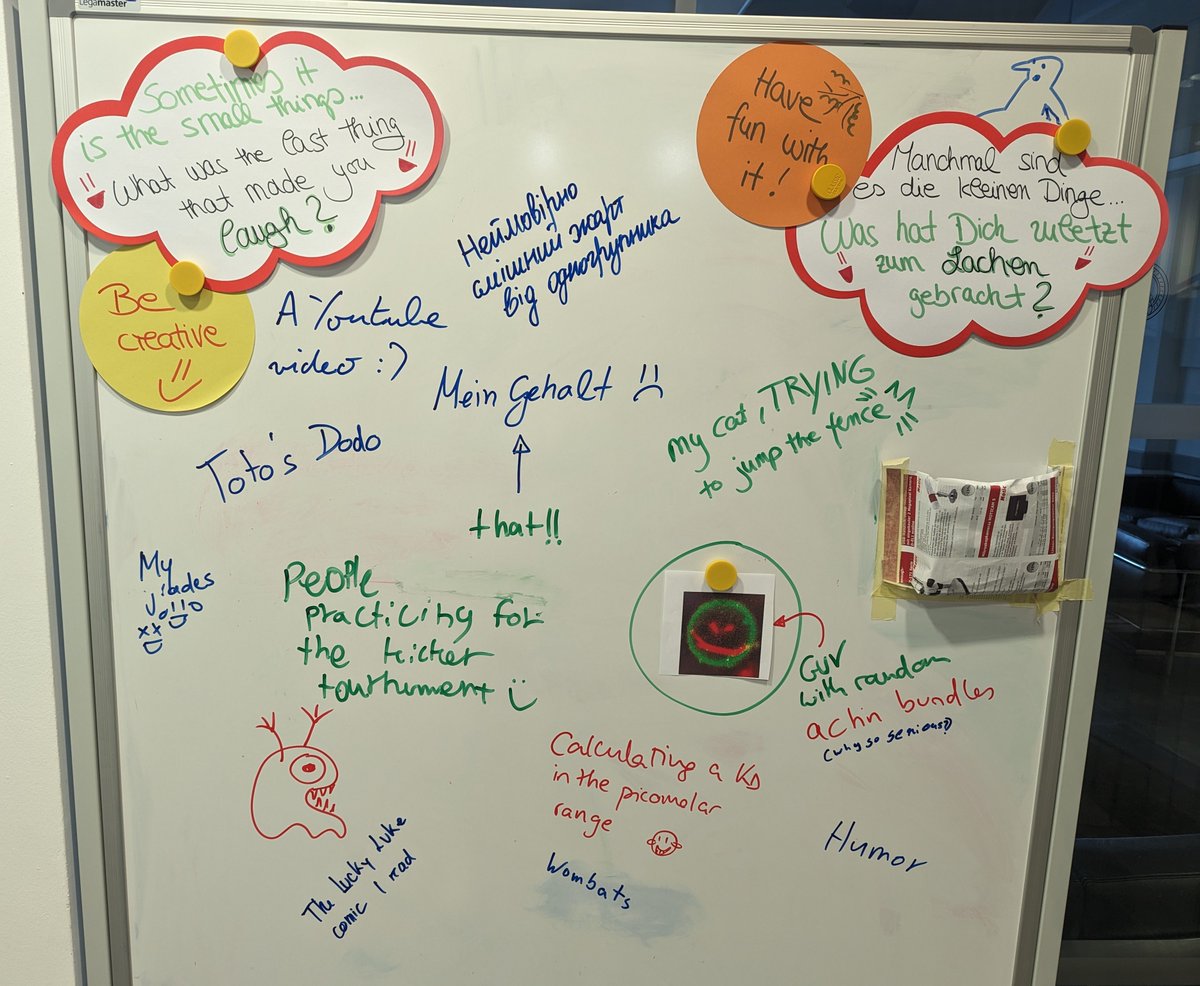 Legamaster
Sometimes it
is the small things...
What was the last thing
that made you
laugh?
Be
creative
Have
fun with
it!
Manchmal sind
es die kleinen Dinge...
Was hat Dich zuletzt
zum Lachen
gebracht?
Неймовірно
смішний жарт
від одногрупника
A Youtube
video :)
Mein Gehalt
that!!
Toto's Dodo
my cat, TRYING
to jump the fence
My
People
practicing for
the kicker
GUV
with random
actin bundles
(why so serious?)
Calculating a KD
in the picomolar
range
The Lucky Luke
comic I read
Wombats
Humor